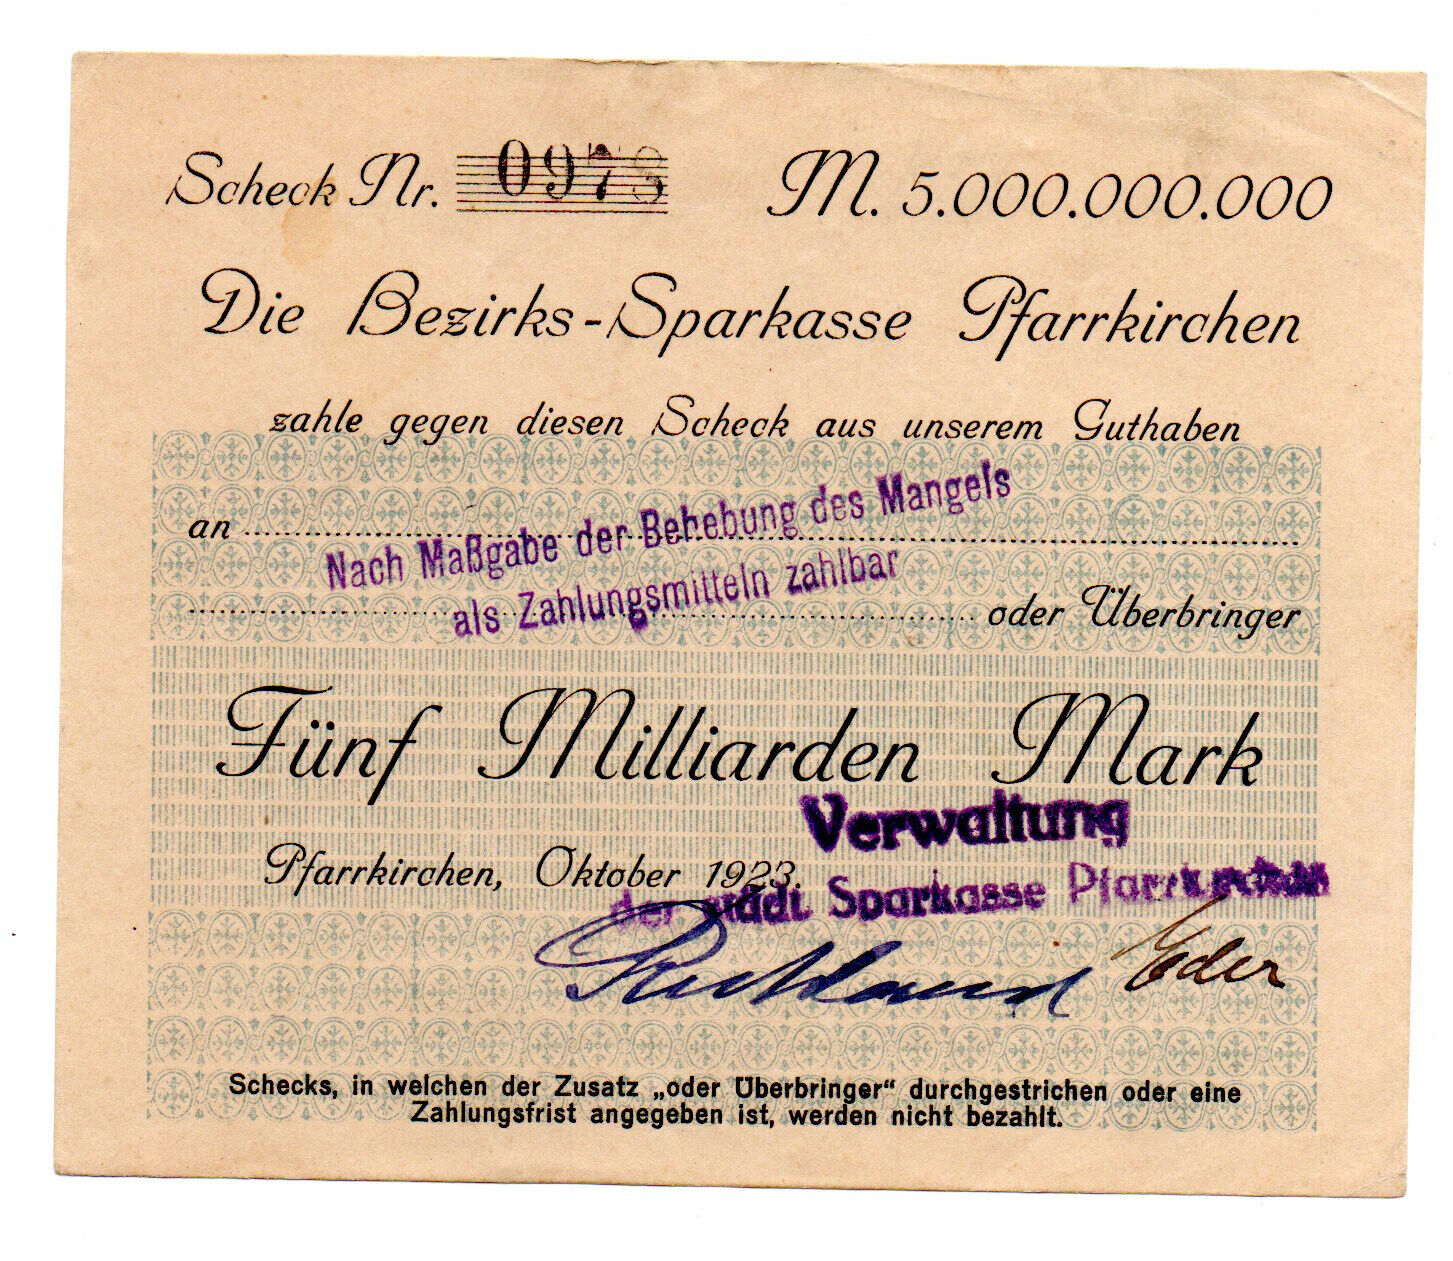 Scheck Nr. 0978 M. 5.000.000.000
Die Bezirks-Sparkasse Pfarrkirchen
zahle gegen diesen Scheck aus unserem Guthaben
an
Nach Maßgabe der Behebung des Mangels
als Zahlungsmitteln zahlbar
oder Überbringer
Fünf Milliarden Mark
Verwaltung
Pfarrkirchen, Oktober 1923.
der städt. Sparkasse Pfarrkirchen
Eder
Schecks, in welchen der Zusatz „oder Überbringer“ durchgestrichen oder eine
Zahlungsfrist angegeben ist, werden nicht bezahlt.